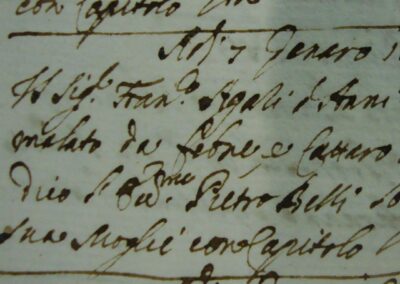 con Capitolo
Adj 7 Genaro 1
Il Sig.r Fran.o Agali d'Anni
malato da febre e Cattaro
dico S.r Ecc.mo Pietro Belli
sua Moglie con Capitolo